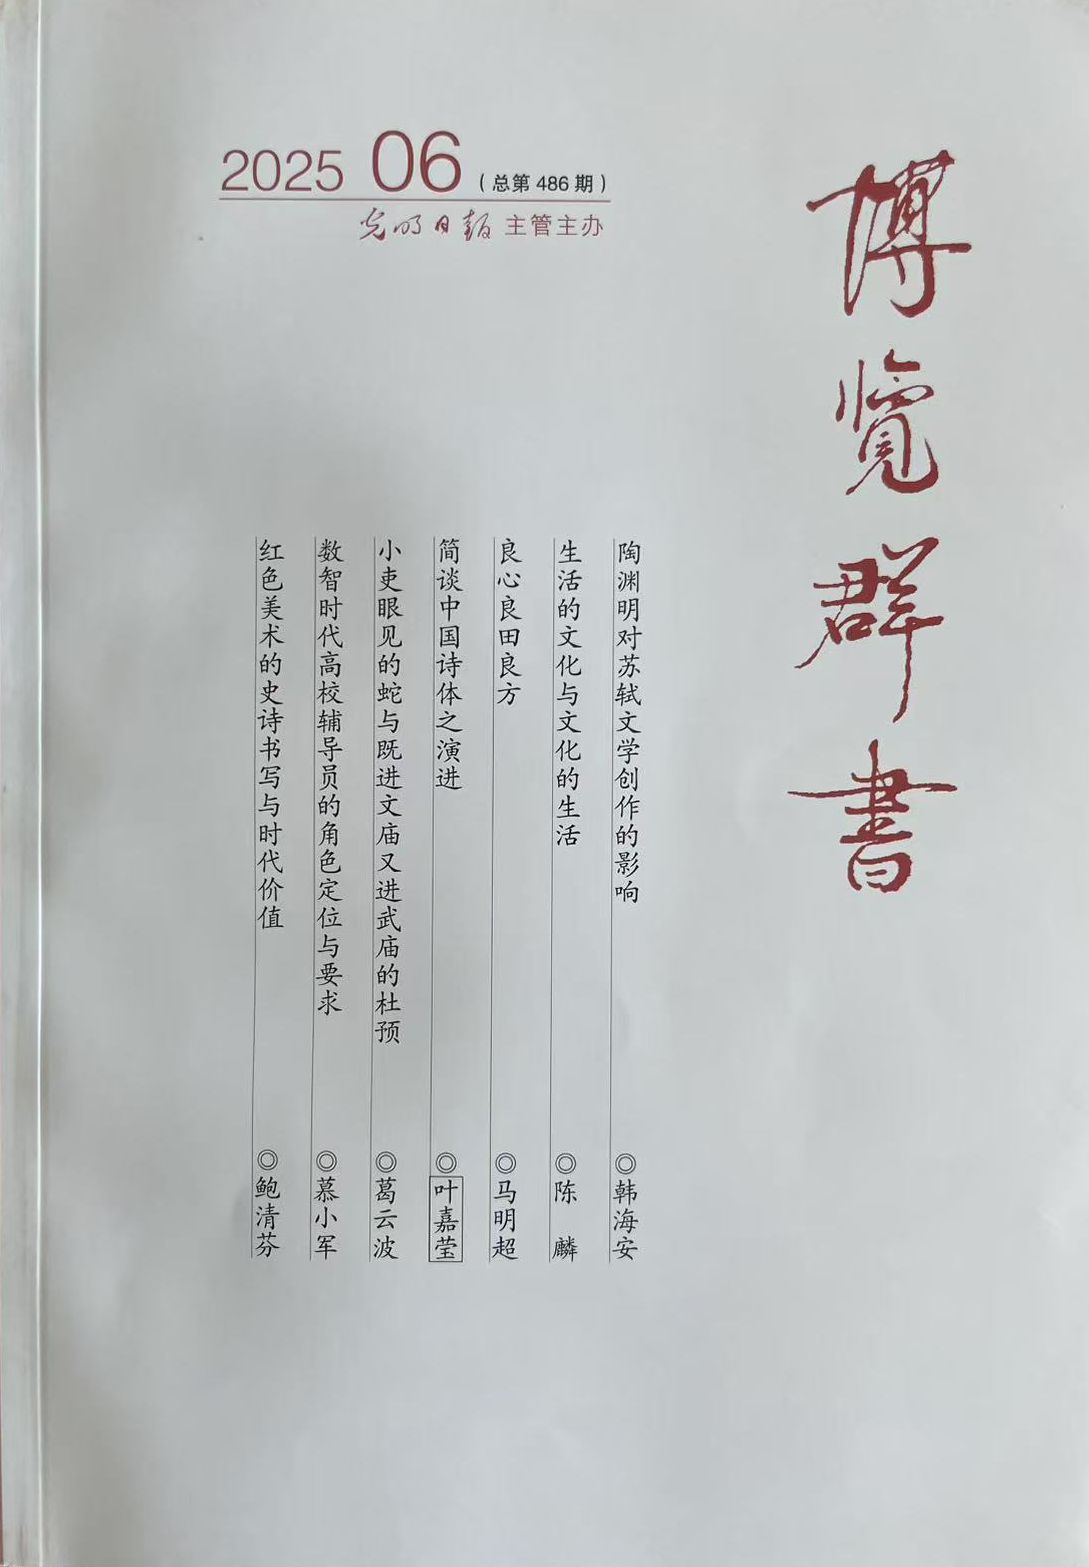 2025 06 (总第 486 期)
光明日报 主管主办
博览群書
陶渊明对苏轼文学创作的影响 ◎韩海安
生活的文化与文化的生活 ◎陈 麟
良心良田良方 ◎马明超
简谈中国诗体之演进 ◎叶嘉莹
小吏眼见的蛇与既进文庙又进武庙的杜预 ◎葛云波
数智时代高校辅导员的角色定位与要求 ◎慕小军
红色美术的史诗书写与时代价值 ◎鲍清芬